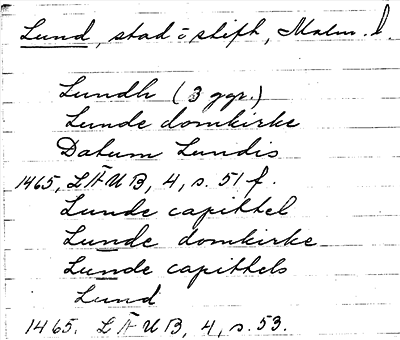 Lund, stad o stift, Malm. l.
Lundh (3 ggr.)
Lunde domkirke
Datum Lundis
1465, LÄUB, 4, s. 51 f.
Lunde capittel
Lunde domkirke
Lunde capittels
Lund
1465. LÄUB, 4, s. 53.